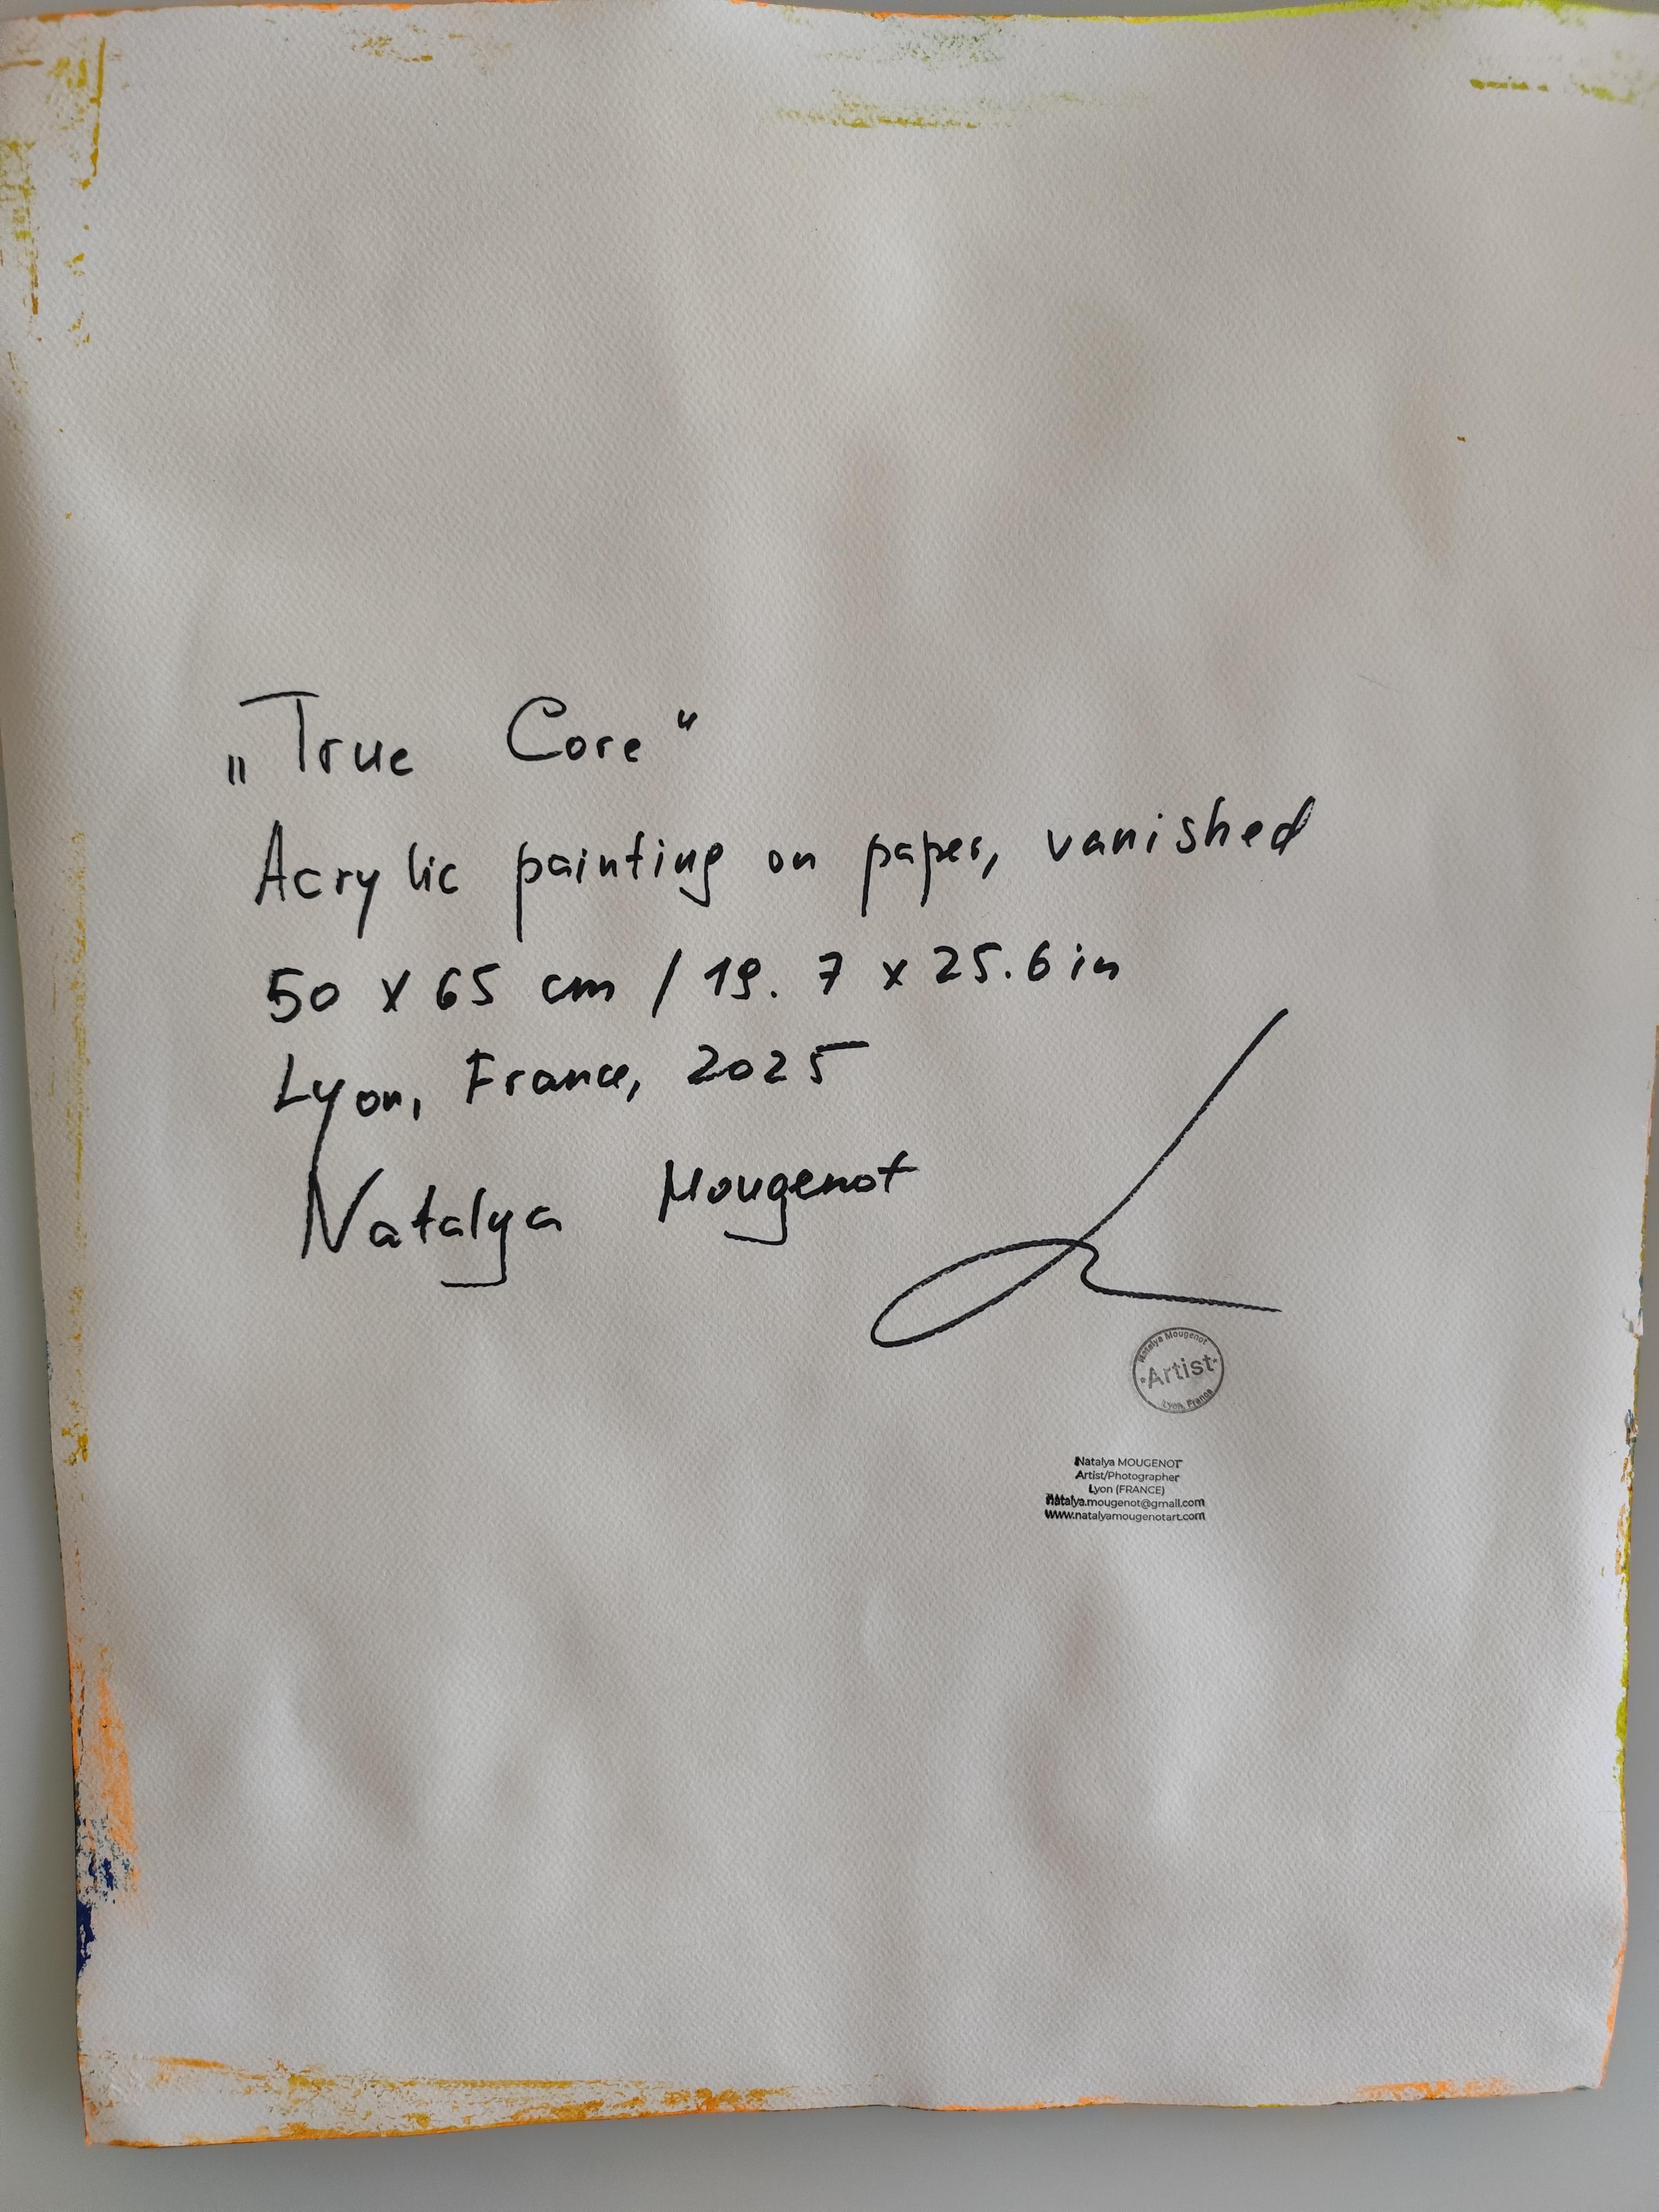 „True Core“
Acrylic painting on paper, vanished
50 x 65 cm / 19.7 x 25.6 in
Lyon, France, 2025
Natalya Mougenot
Natalya Mougenot
·Artist·
Lyon, France
Natalya MOUGENOT
Artist/Photographer
Lyon (FRANCE)
natalya.mougenot@gmail.com
www.natalyamougenotart.com